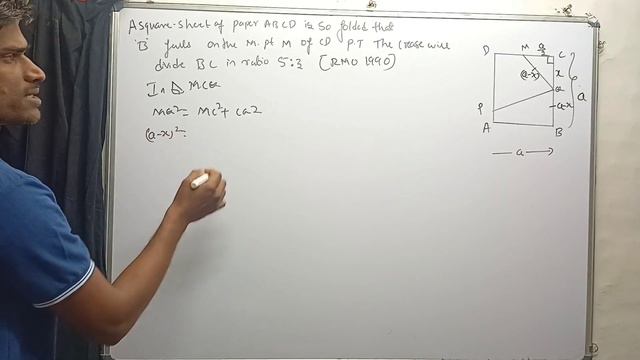 A square sheet of paper ABCD is so folded that
B falls on the M. pt M of CD P.T The crease will
divide BC in ratio 5:3 [RMO 1990]
In Δ MCQ
MQ² = MC² + CQ2
(a-x)² =
D M a/2 C
(a-x) x
Q a
P a-x
A B
a